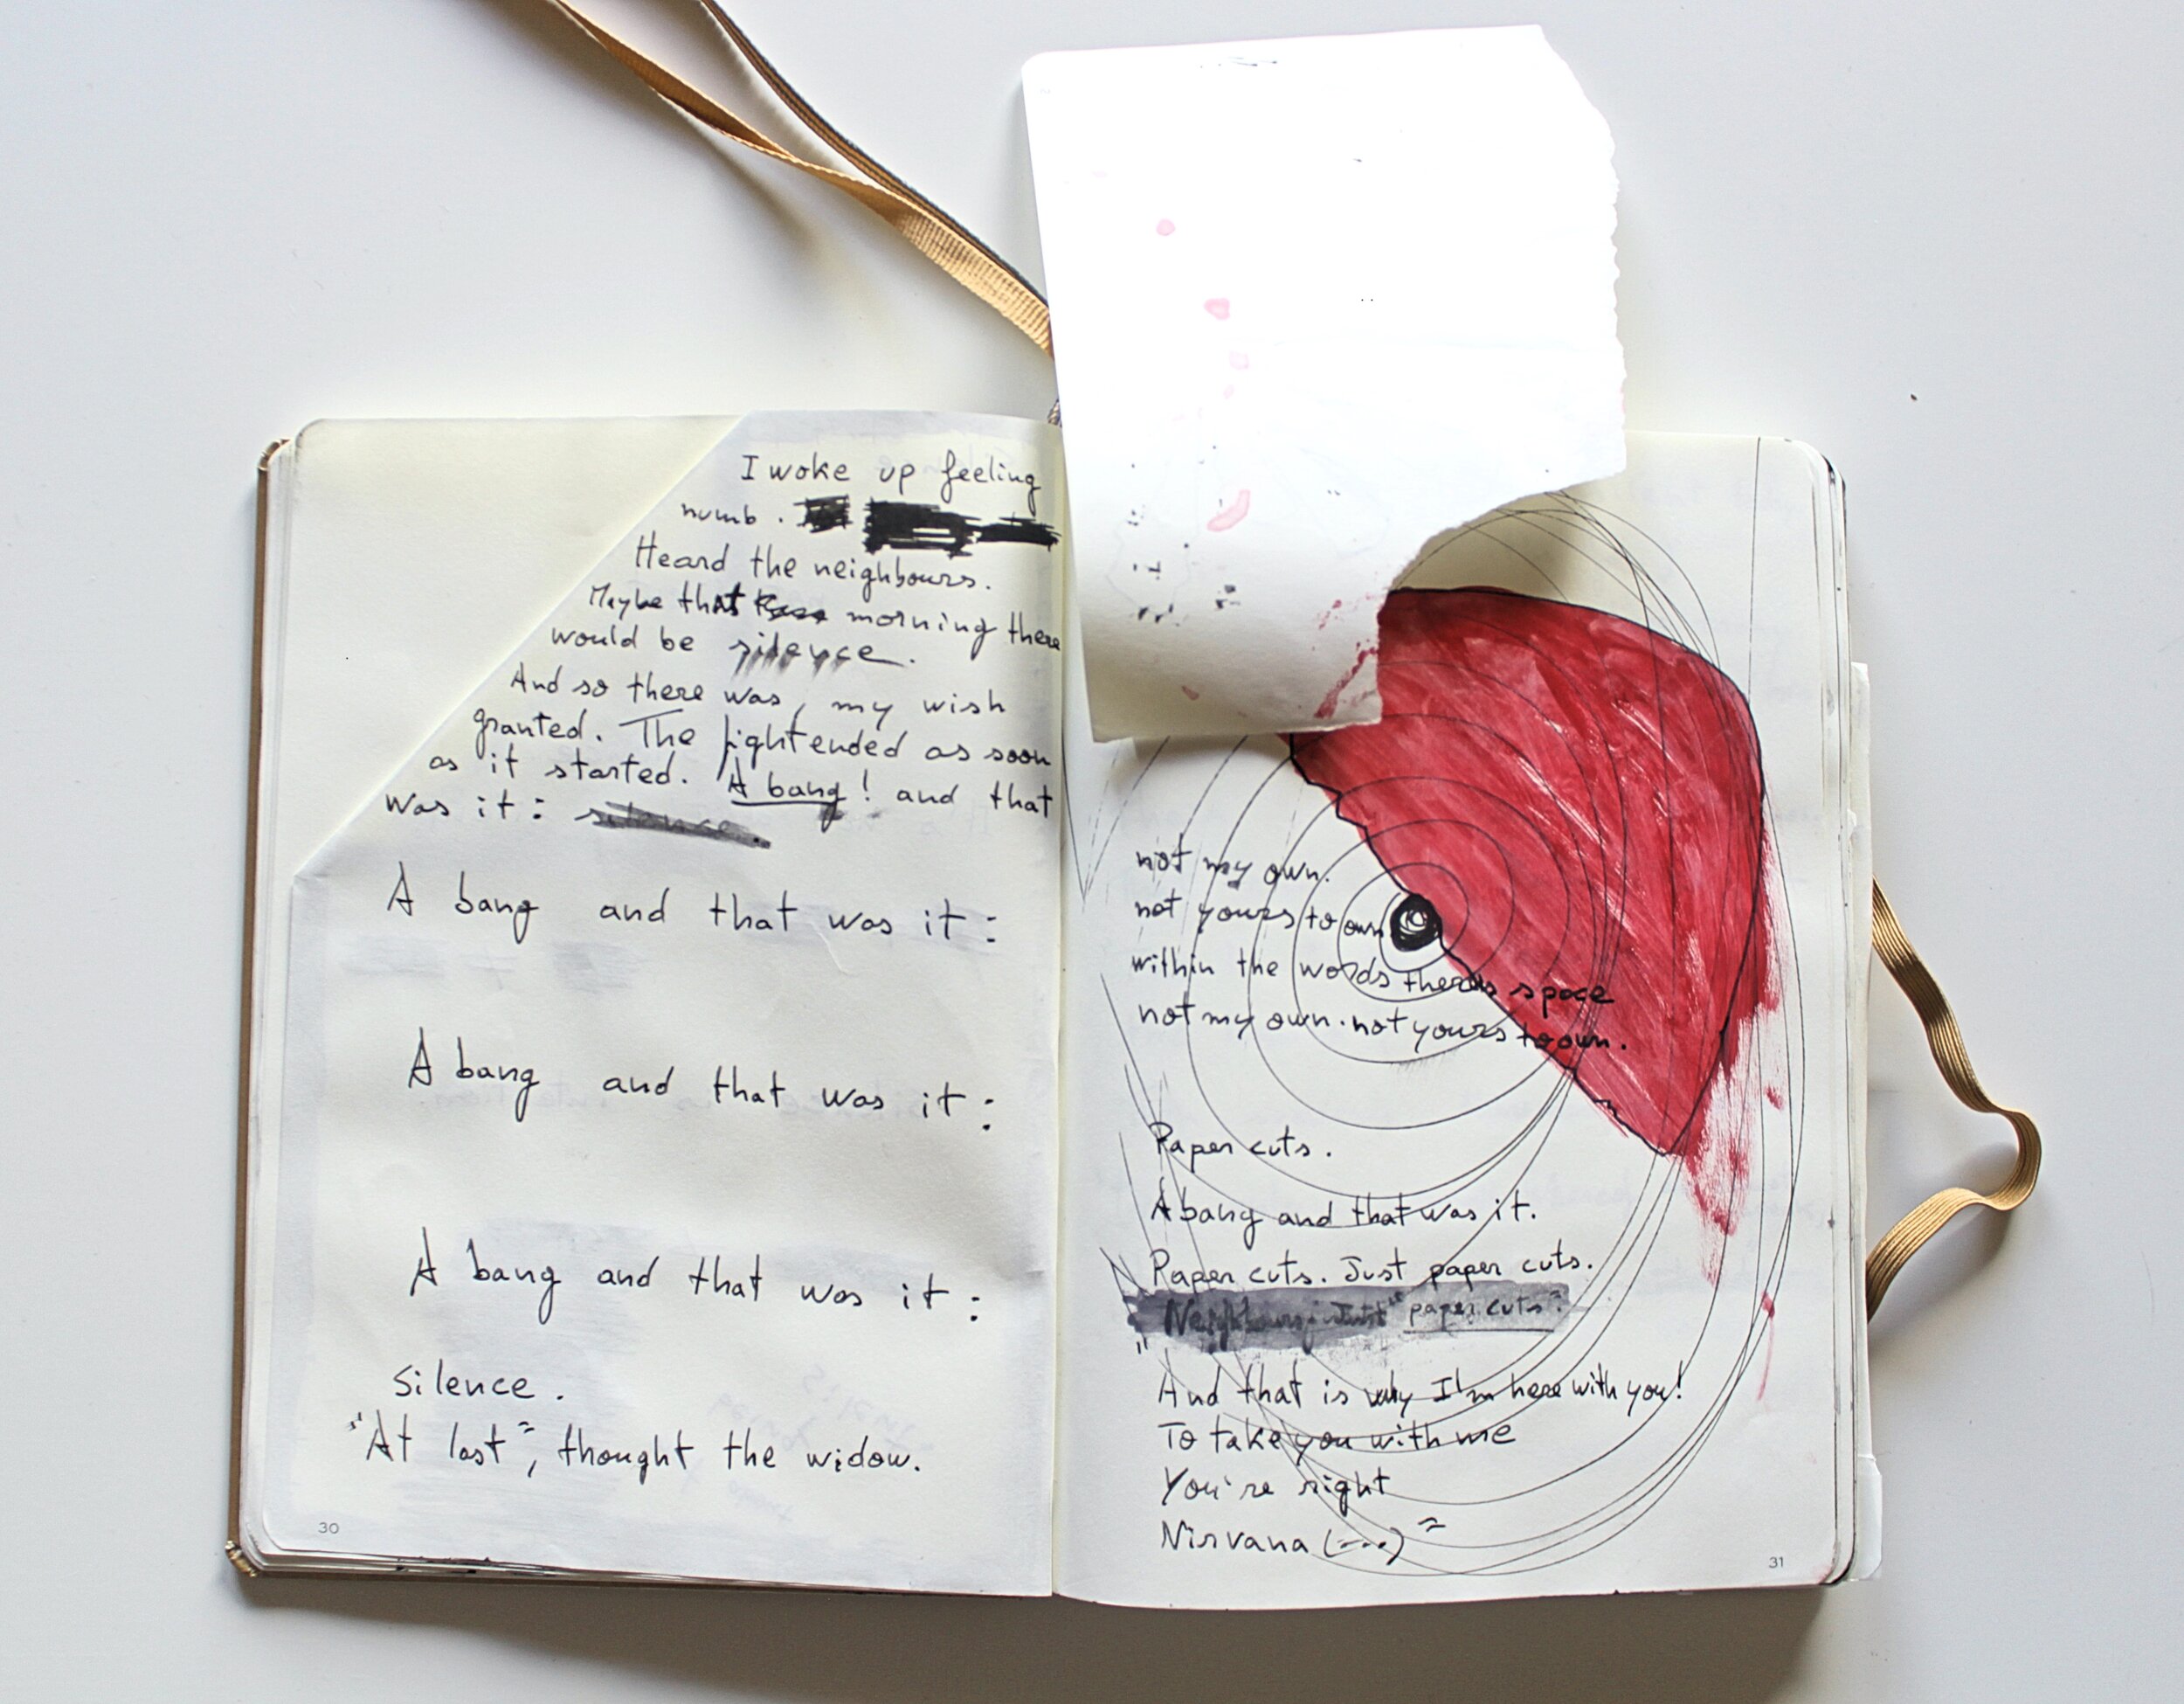 I woke up feeling
numb.
Heard the neighbours.
Maybe that morning there
would be silence.
And so there was, my wish
granted. The fight ended as soon
as it started. A bang! and that
was it: silence.
A bang and that was it:
A bang and that was it:
A bang and that was it:
silence.
"At last", thought the widow.
30
not my own.
not yours to own
within the words there is space
not my own. not yours to own.
Paper cuts.
A bang and that was it.
Paper cuts. Just paper cuts.
Neighbours: Just "paper cuts".
"And that is why I'm here with you!
To take you with me
You're right
Nirvana (---)"
31